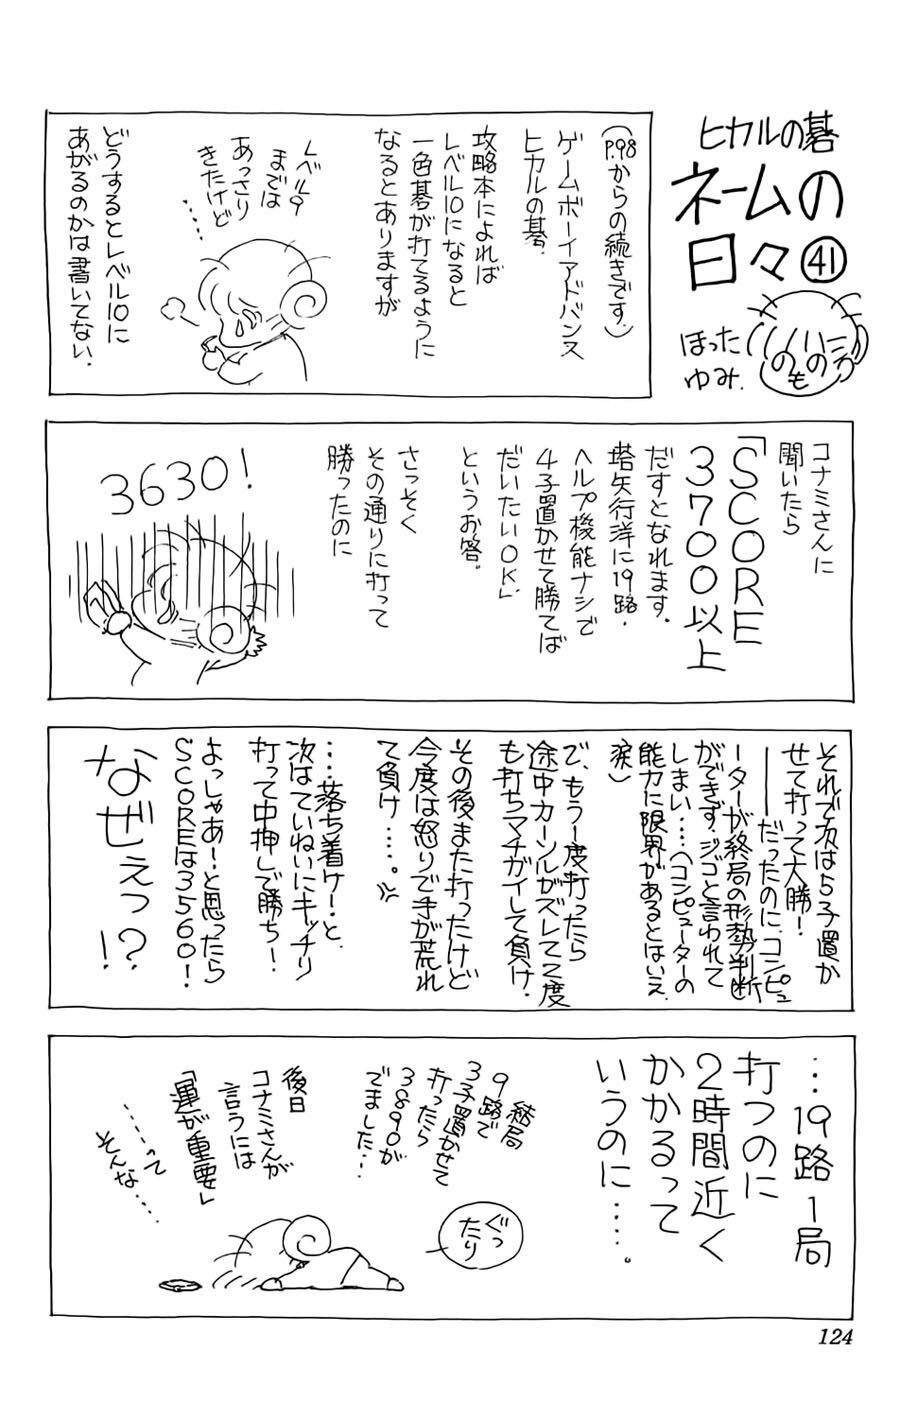 ヒカルの碁
ネームの
日々㊶
ほった
ゆみ.
へのへのもへじ
(P.98からの続きです.)
ゲームボーイアドバンス
ヒカルの碁.
攻略本によれば
レベル10になると
一色碁が打てるように
なるとありますが
レベル9
までは
あっさり
きたけど
……
どうするとレベル10に
あがるのかは書いてない.
コナミさんに
聞いたら
「SCORE
3700以上
だすとなれます.
塔矢行洋に19路・
ヘルプ機能ナシで
4子置かせて勝てば
だいたいOK」
というお答。
さっそく
その通りに打って
勝ったのに
3630!
それで次は5子置か
せて打って大勝!
――だったのに、コンピュ
ーターが終局の形勢判断
ができず、ジゴと言われて
しまい……(コンピューターの
能力に限界があるとはいえ
涙)
で、もう1度打ったら
途中カーソルがズレて2度
も打ちマチガイして負け.
その後また打ったけど
今度は怒りで手が荒れ
て負け……。
…落ち着け!と、
次はていねいにキッチリ
打って中押しで勝ち!
よっしゃあ!と思ったら
SCOREは3560!
なぜぇっ!?
…19路1局
打つのに
2時間近く
かかるって
いうのに……。
結局
9路で
3子置かせて
打ったら
3890が
でました…
ぐっ
たり
後日
コナミさんが
言うには
「運が重要」
……って
そんな……
124